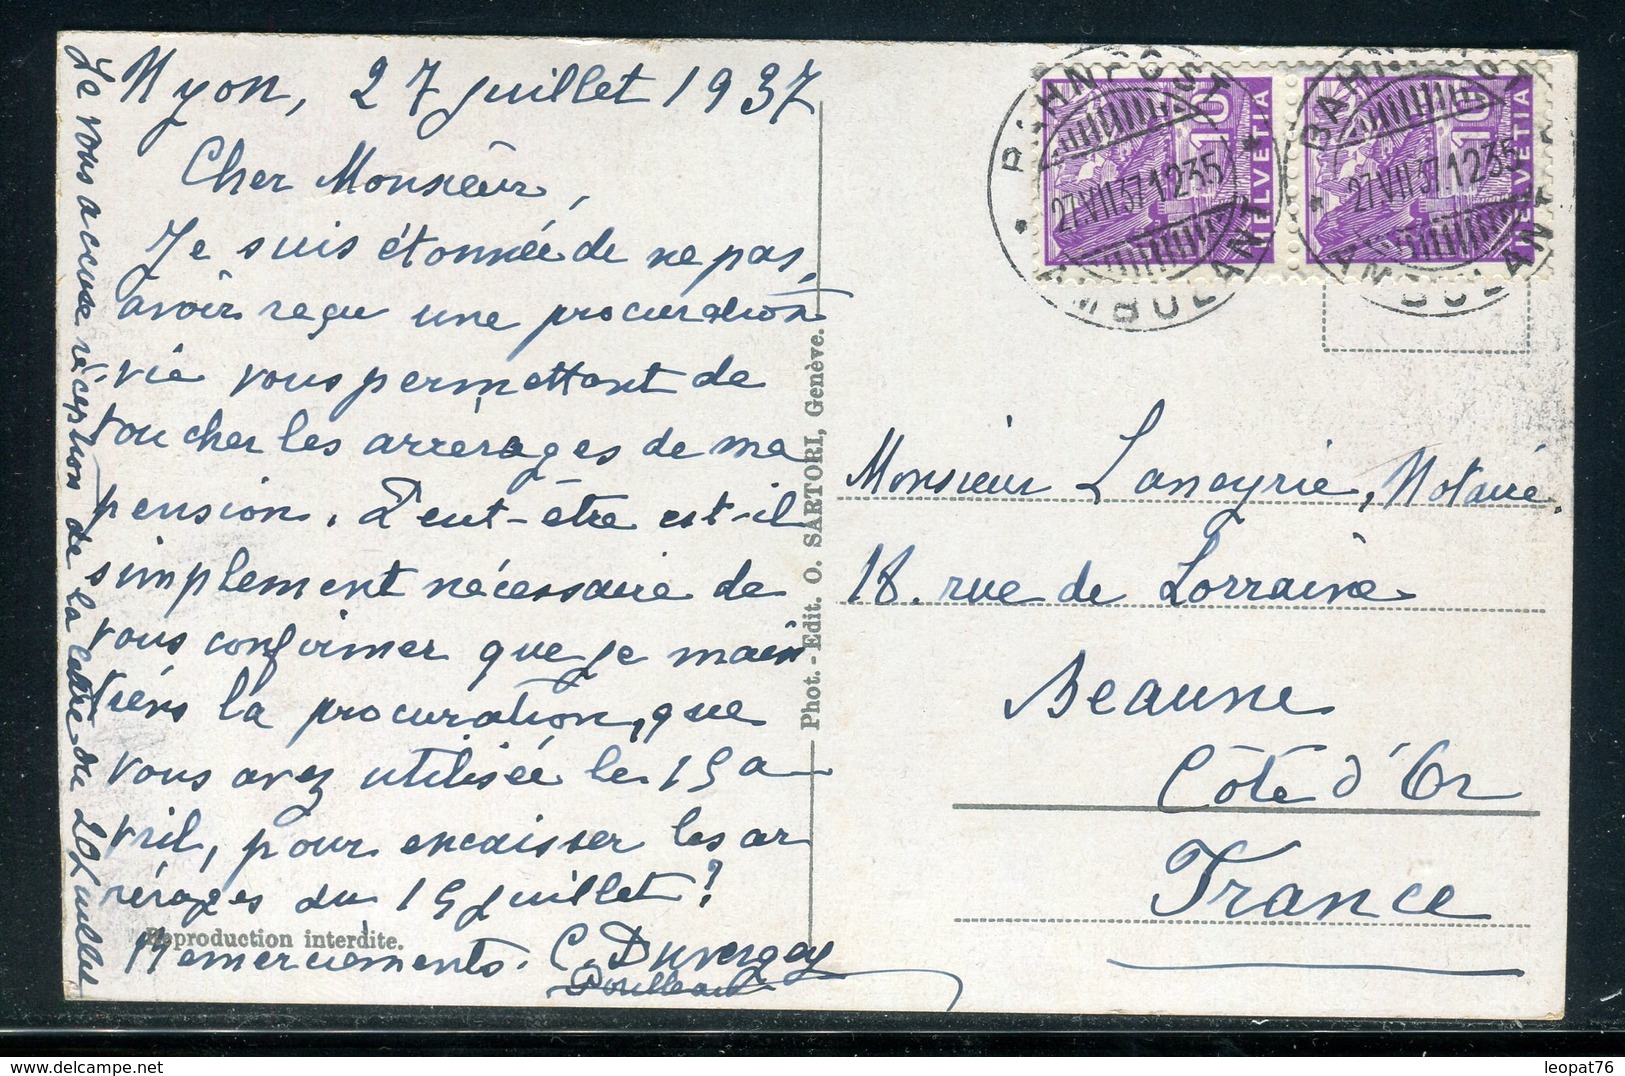 Nyon, 27 juillet 1937
Cher Monsieur,
Je suis étonnée de ne pas
avoir reçu une procuration
vie vous permettant de
toucher les arrérages de ma
pension. Peut-être est-il
simplement nécessaire de
vous confirmer que je main
tiens la procuration, que
vous avez utilisée le 15 a-
vril, pour encaisser les ar
rérages du 15 juillet?
Remerciements. C. Duvergey
Je vous accuse réception de la lettre du 20 juillet
Reproduction interdite.
Phot.-Edit. O. SARTORI, Genève.
BAHNPOST
27.VII.37.1235
AMBULANT
10
HELVETIA
BAHNPOST
27.VII.37.1235
AMBULANT
10
HELVETIA
Monsieur Laneyrie, Notaire
18. rue de Lorraine
Beaune
Côte d'Or
France
leopat76